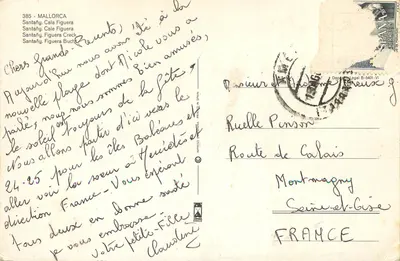 385 - MALLORCA
Santañy. Cala Figuera
Santañy. Cale Figuera
Santañy. Figuera Creek
Santañy. Figuera Bucht
Chers Grands-Parents,
Aujourd'hui nous avons été à la
nouvelle plage dont Nicole vous a
parlé, nous nous sommes bien amusés,
le soleil toujours de la fête,
Nous allons partir d'ici vers le
24-25 pour les îles Baléares et
aller voir la sœur à
direction France - Vous espérant
tous deux en bonne santé
je vous embrasse -
Votre petite-fille
Claudine
Monsieur et
Ruelle Pinson
Route de Calais
Montmagny
Seine-et-Oise
FRANCE